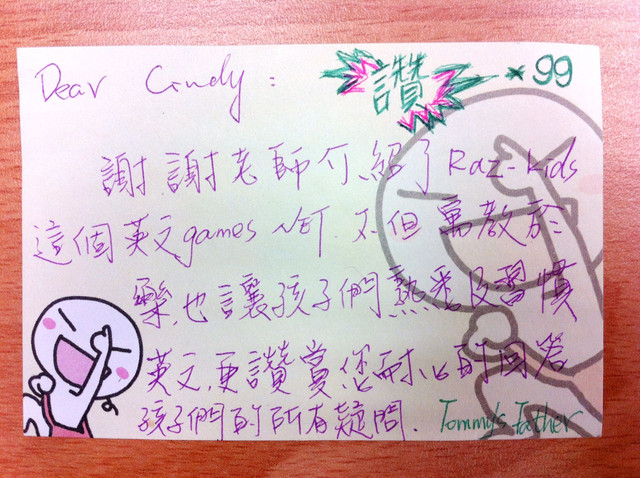 Dear Cindy : 讚 × 99
謝謝老師介紹了Raz-kids
這個英文games NET.不但寓教於
樂,也讓孩子們熟悉及習慣
英文,更讚賞您耐心的回答
孩子們的所有疑問. Tommy's Father